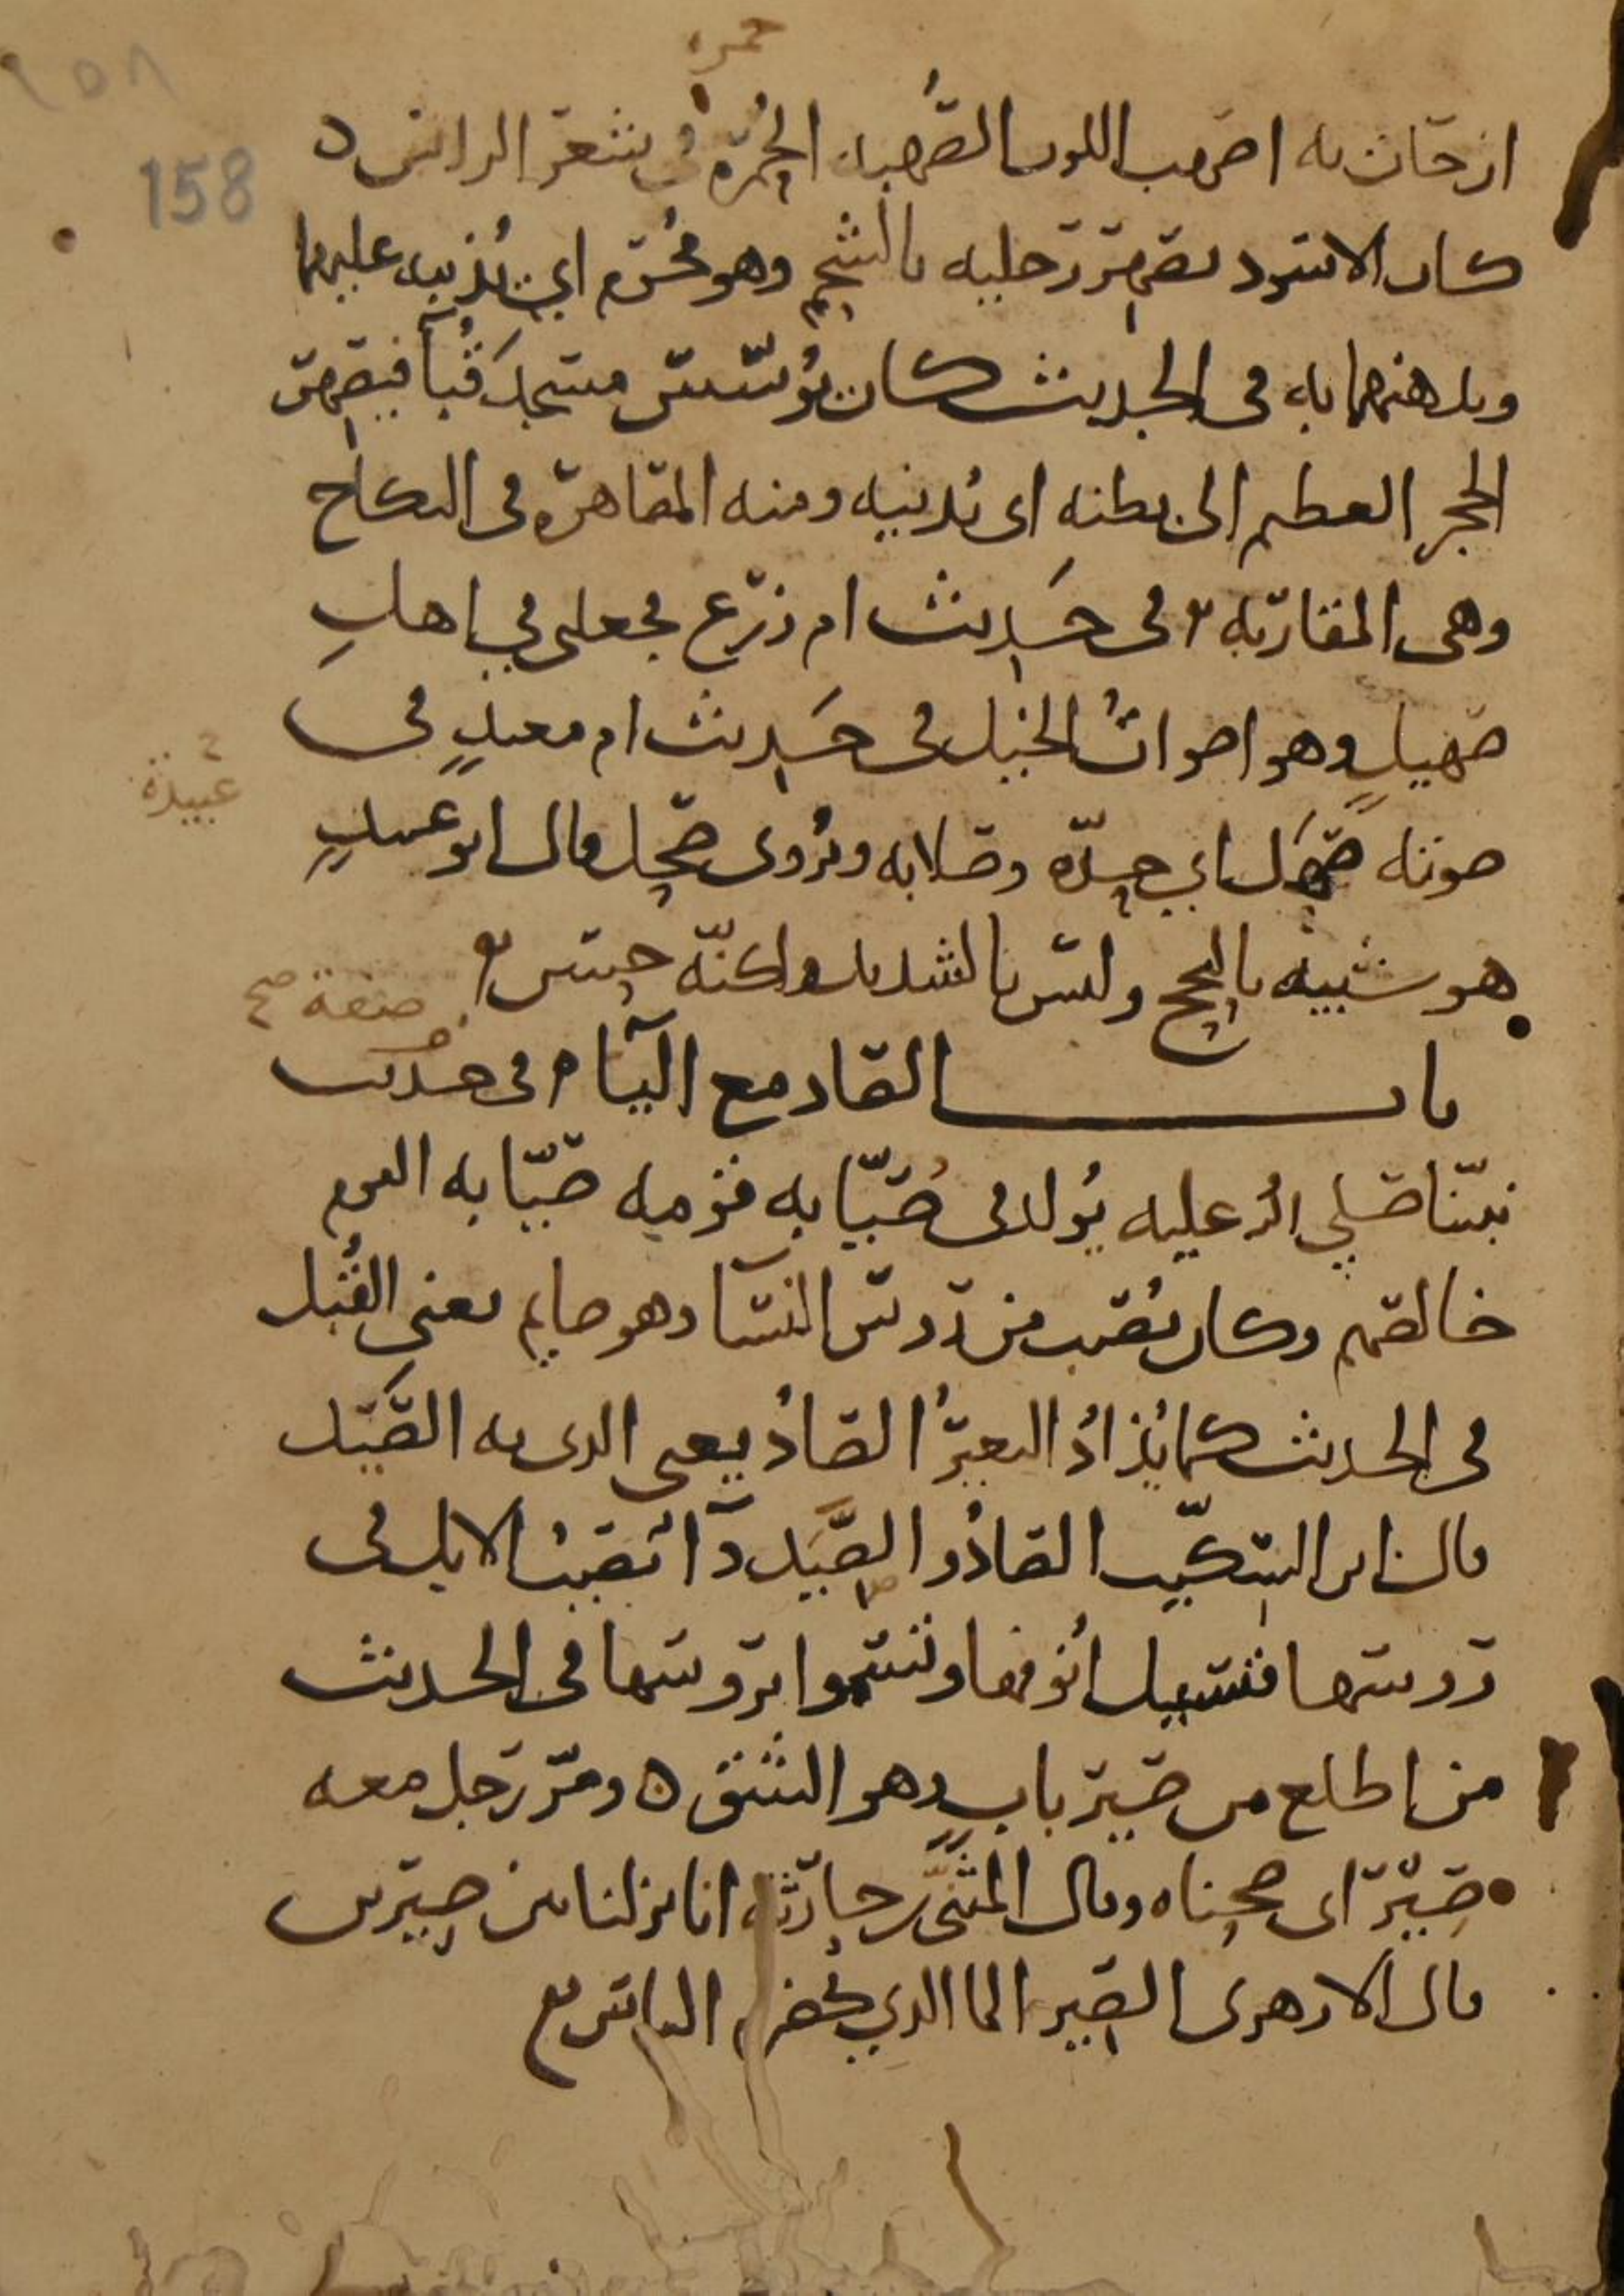 حمره
١٥٨
158
ان جات به اصهب اللون الصهبه الحُمرة في شعر الراس ه
كان الاسود يصهر رجليه بالشحم وهو محرم اي يُذيبه عليهما
ويدهنهما به في الحديث كان يُؤسس مسجد قُبآ فيصهر
الحجر العظيم الى بطنه اى يُدنيه ومنه المصاهرة في النكاح
وهي المقاربه في حَديث ام زرع فجعلني في اهلِ
صهيلٍ وهو اصواتُ الخيل في حَديث ام معبدٍ في
صوته صَهَل اي حِدّه وصلابه ويُروى صحل قال ابو عبيدٍ
عُبيدة
هو شبيه بالبحح وليس بالشديد ولكنّه حسن
باب الصاد مع اليآ في حديث
صفة صح
نبيّنا صلى الله عليه يُولد في صُيّابه قومه صُيّابه القوم
خالصهم وكان يُصيب من روس النسآ وهو صايم يعني القُبَل
في الحديث كما يُذادُ البعيرُ الصادُ يعنى الذي به الصَّيَد
قال ابن السكّيت الصادُ والصَّيَد دآ يُصيب الابل في
روسها فتسيل اُنوفها وتسموا بروسها في الحديث
من اطلع من صير بابٍ وهو الشق ه ومرّ رجل معه
صِيْر اى صحناه وقال المثنَّى بن حارثة انا نزلنا بين صِيرين
قال الازهرى الصير الما الذي يحضره الناس